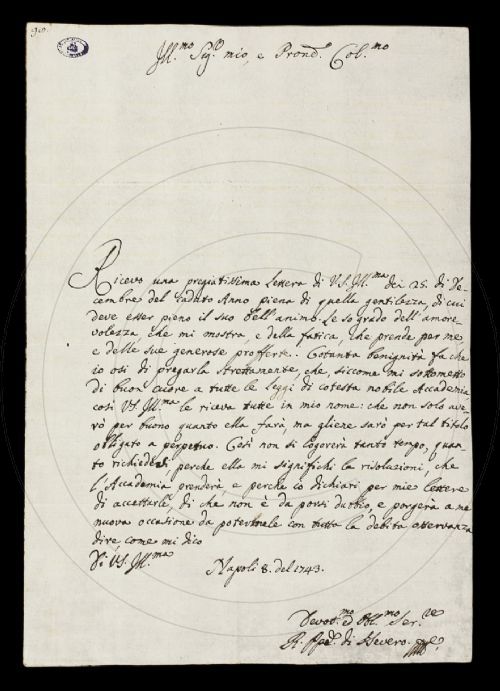 Ill.mo Sig.e mio, e Pron.e Col.mo
Ricevo una pregiatissima lettera di V.S.Ill.ma dei 25. di De-
cembre del caduto Anno piena di quella gentilezza, di cui
deve esser pieno il suo bell'animo. Le so grado dell'amore-
volezza, che mi mostra, e della fatica, che prende per me,
e delle sue generose profferte. Cotanta benignità fa che
io osi di pregarla strettamente, che, siccome mi sottometto
di buon cuore a tutte le leggi di cotesta nobile Accademia,
così VS.Ill.ma le riceva tutte in mio nome: che non solo av-
rò per buono quanto ella farà, ma gliene sarò per tal titolo
obligato a perpetuo. Così non si logorerà tanto tempo, quan-
to richiedesi, perche ella mi significhi la risoluzioni, che
l'Accademia prenderà, e perche io dichiari per mie lettere
di accettarle, di che non è da porsi dubbio, e porgerà a me
nuova occasione da potermele con tutta la debita osservanza
dire, come mi dico
Di V.S.Ill.ma
Napoli 8. del 1743.
Devot.mo Obl.mo Ser.re
di Severo